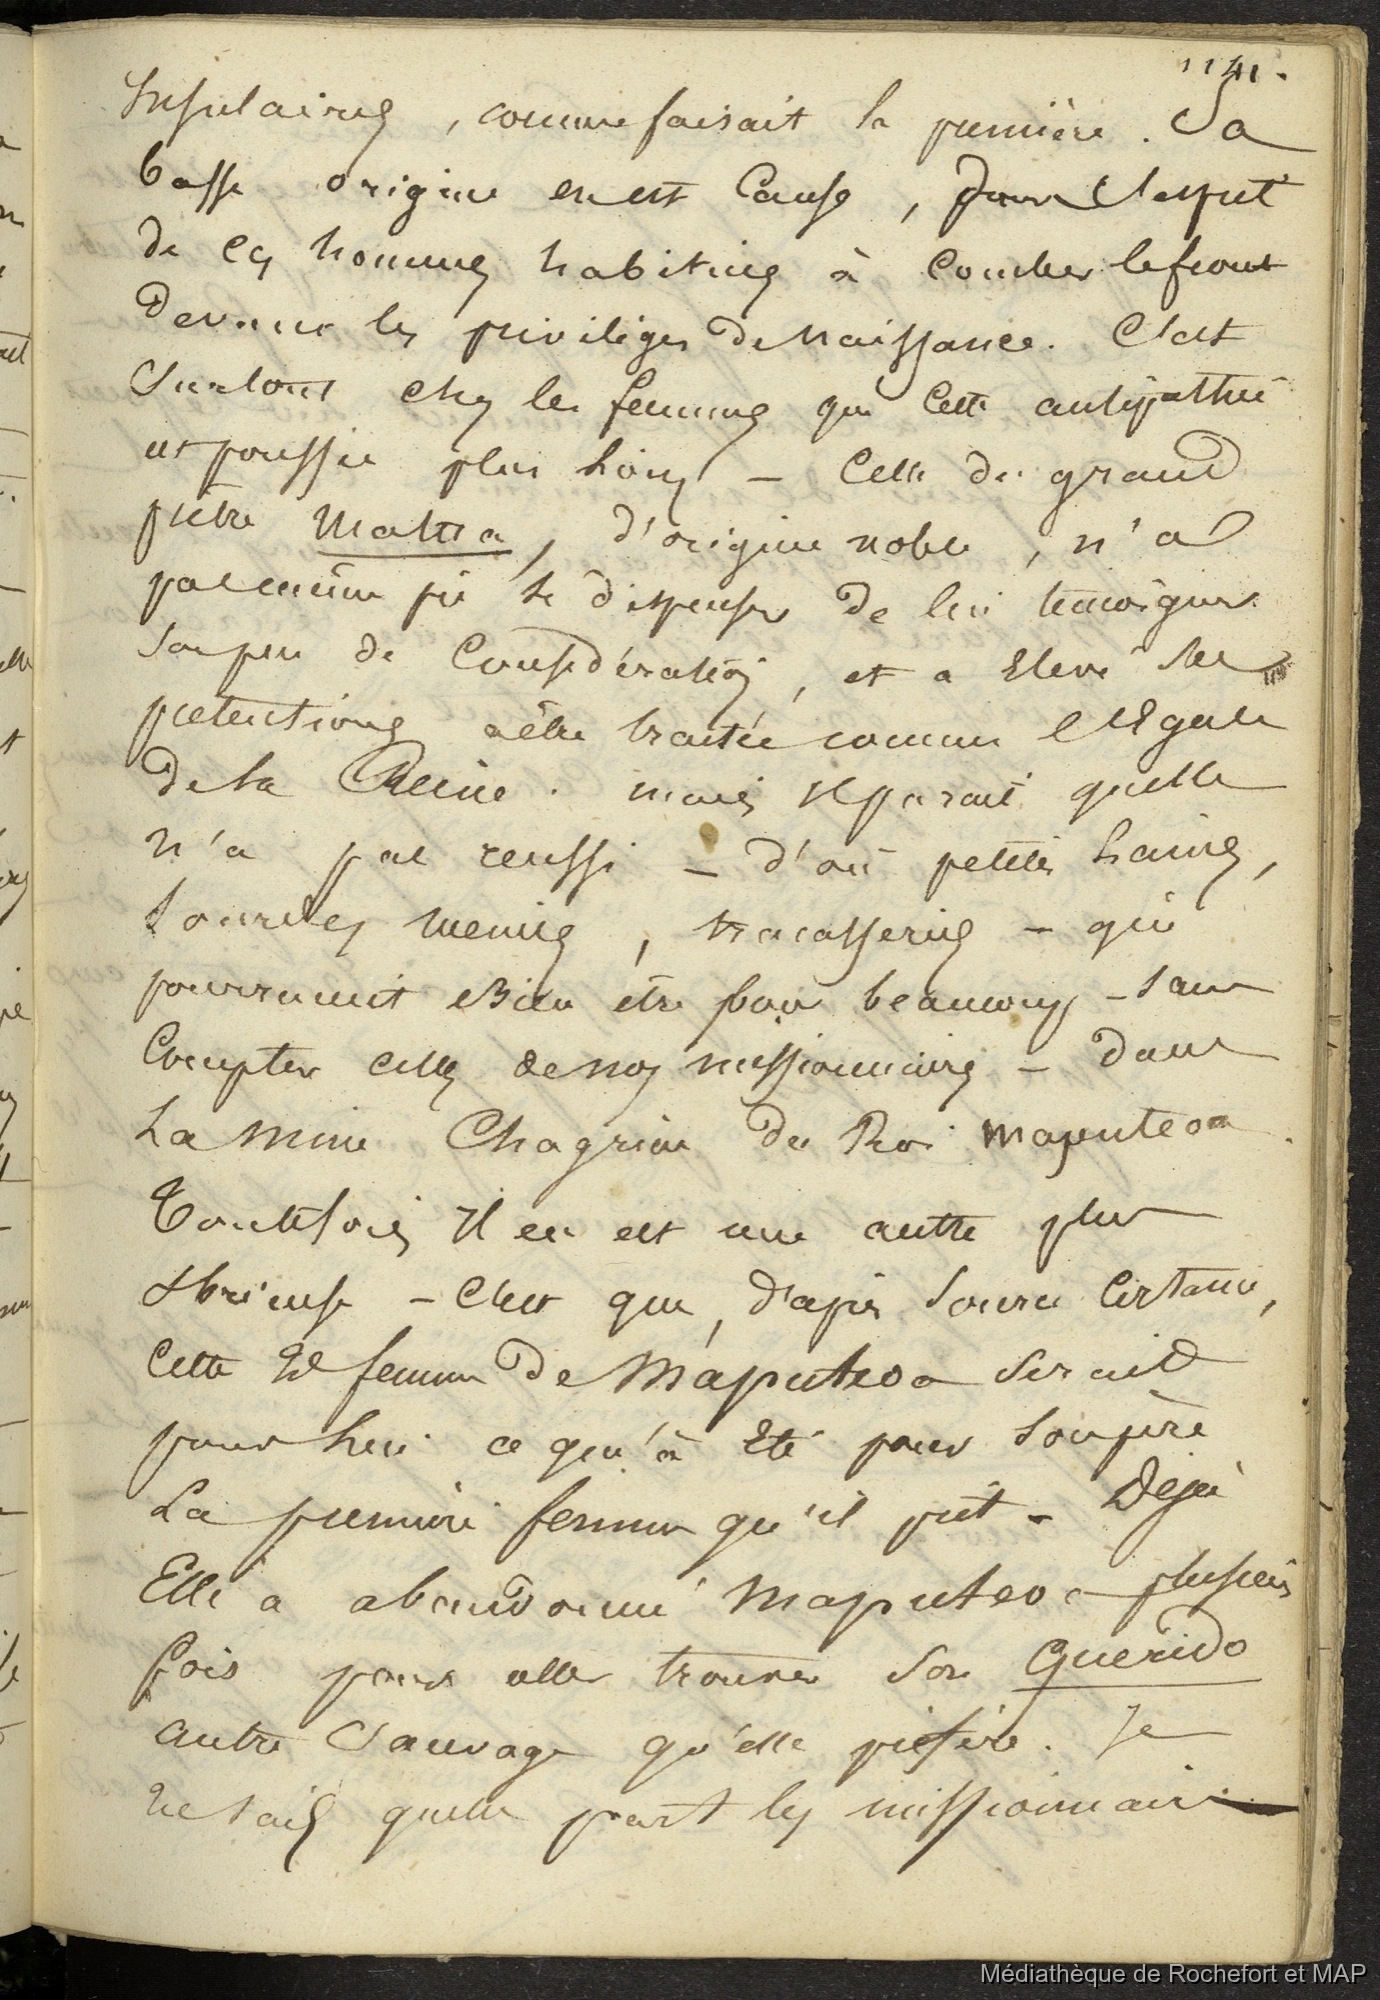 1141.
Insulaires, comme faisait la première. Sa
basse origine en est Cause, dans l'esprit
de ces hommes habitués à Courber le front
Devant les privilèges de Naissance. C'est
Surtout chez les femmes que Cette antipathie
est poussée plus loin – Celle du grand
prêtre Matua, d'origine noble, n'a
pas même pu se dispenser De lui témoigner
son peu de Considération, et a Elevé des
prétentions a être traitée comme l'Egale
de la Reine. mais il parait qu'elle
n'a pas reussi – d'où petites haines,
Sourdes menées, tracasseries – qui
pourraient Bien être pour beaucoup – sans
Compter celles de nos missionnaires – dans
La mine Chagrine du Roi Maputeoa.
Toutefois Il en est une autre plus
Sérieuse – C'est que, d'après Source Certaine,
Cette 2e femme De Maputeoa Serait
pour lui ce qu'à Eté pour Son père
La première femme qu'il prit – Déjà
Elle a abandonné Maputeoa plusieurs
fois pour aller trouver Son Querido
autre Sauvage qu'elle préfère. Je
ne sais quelle part les missionnaires
Médiathèque de Rochefort et MAP